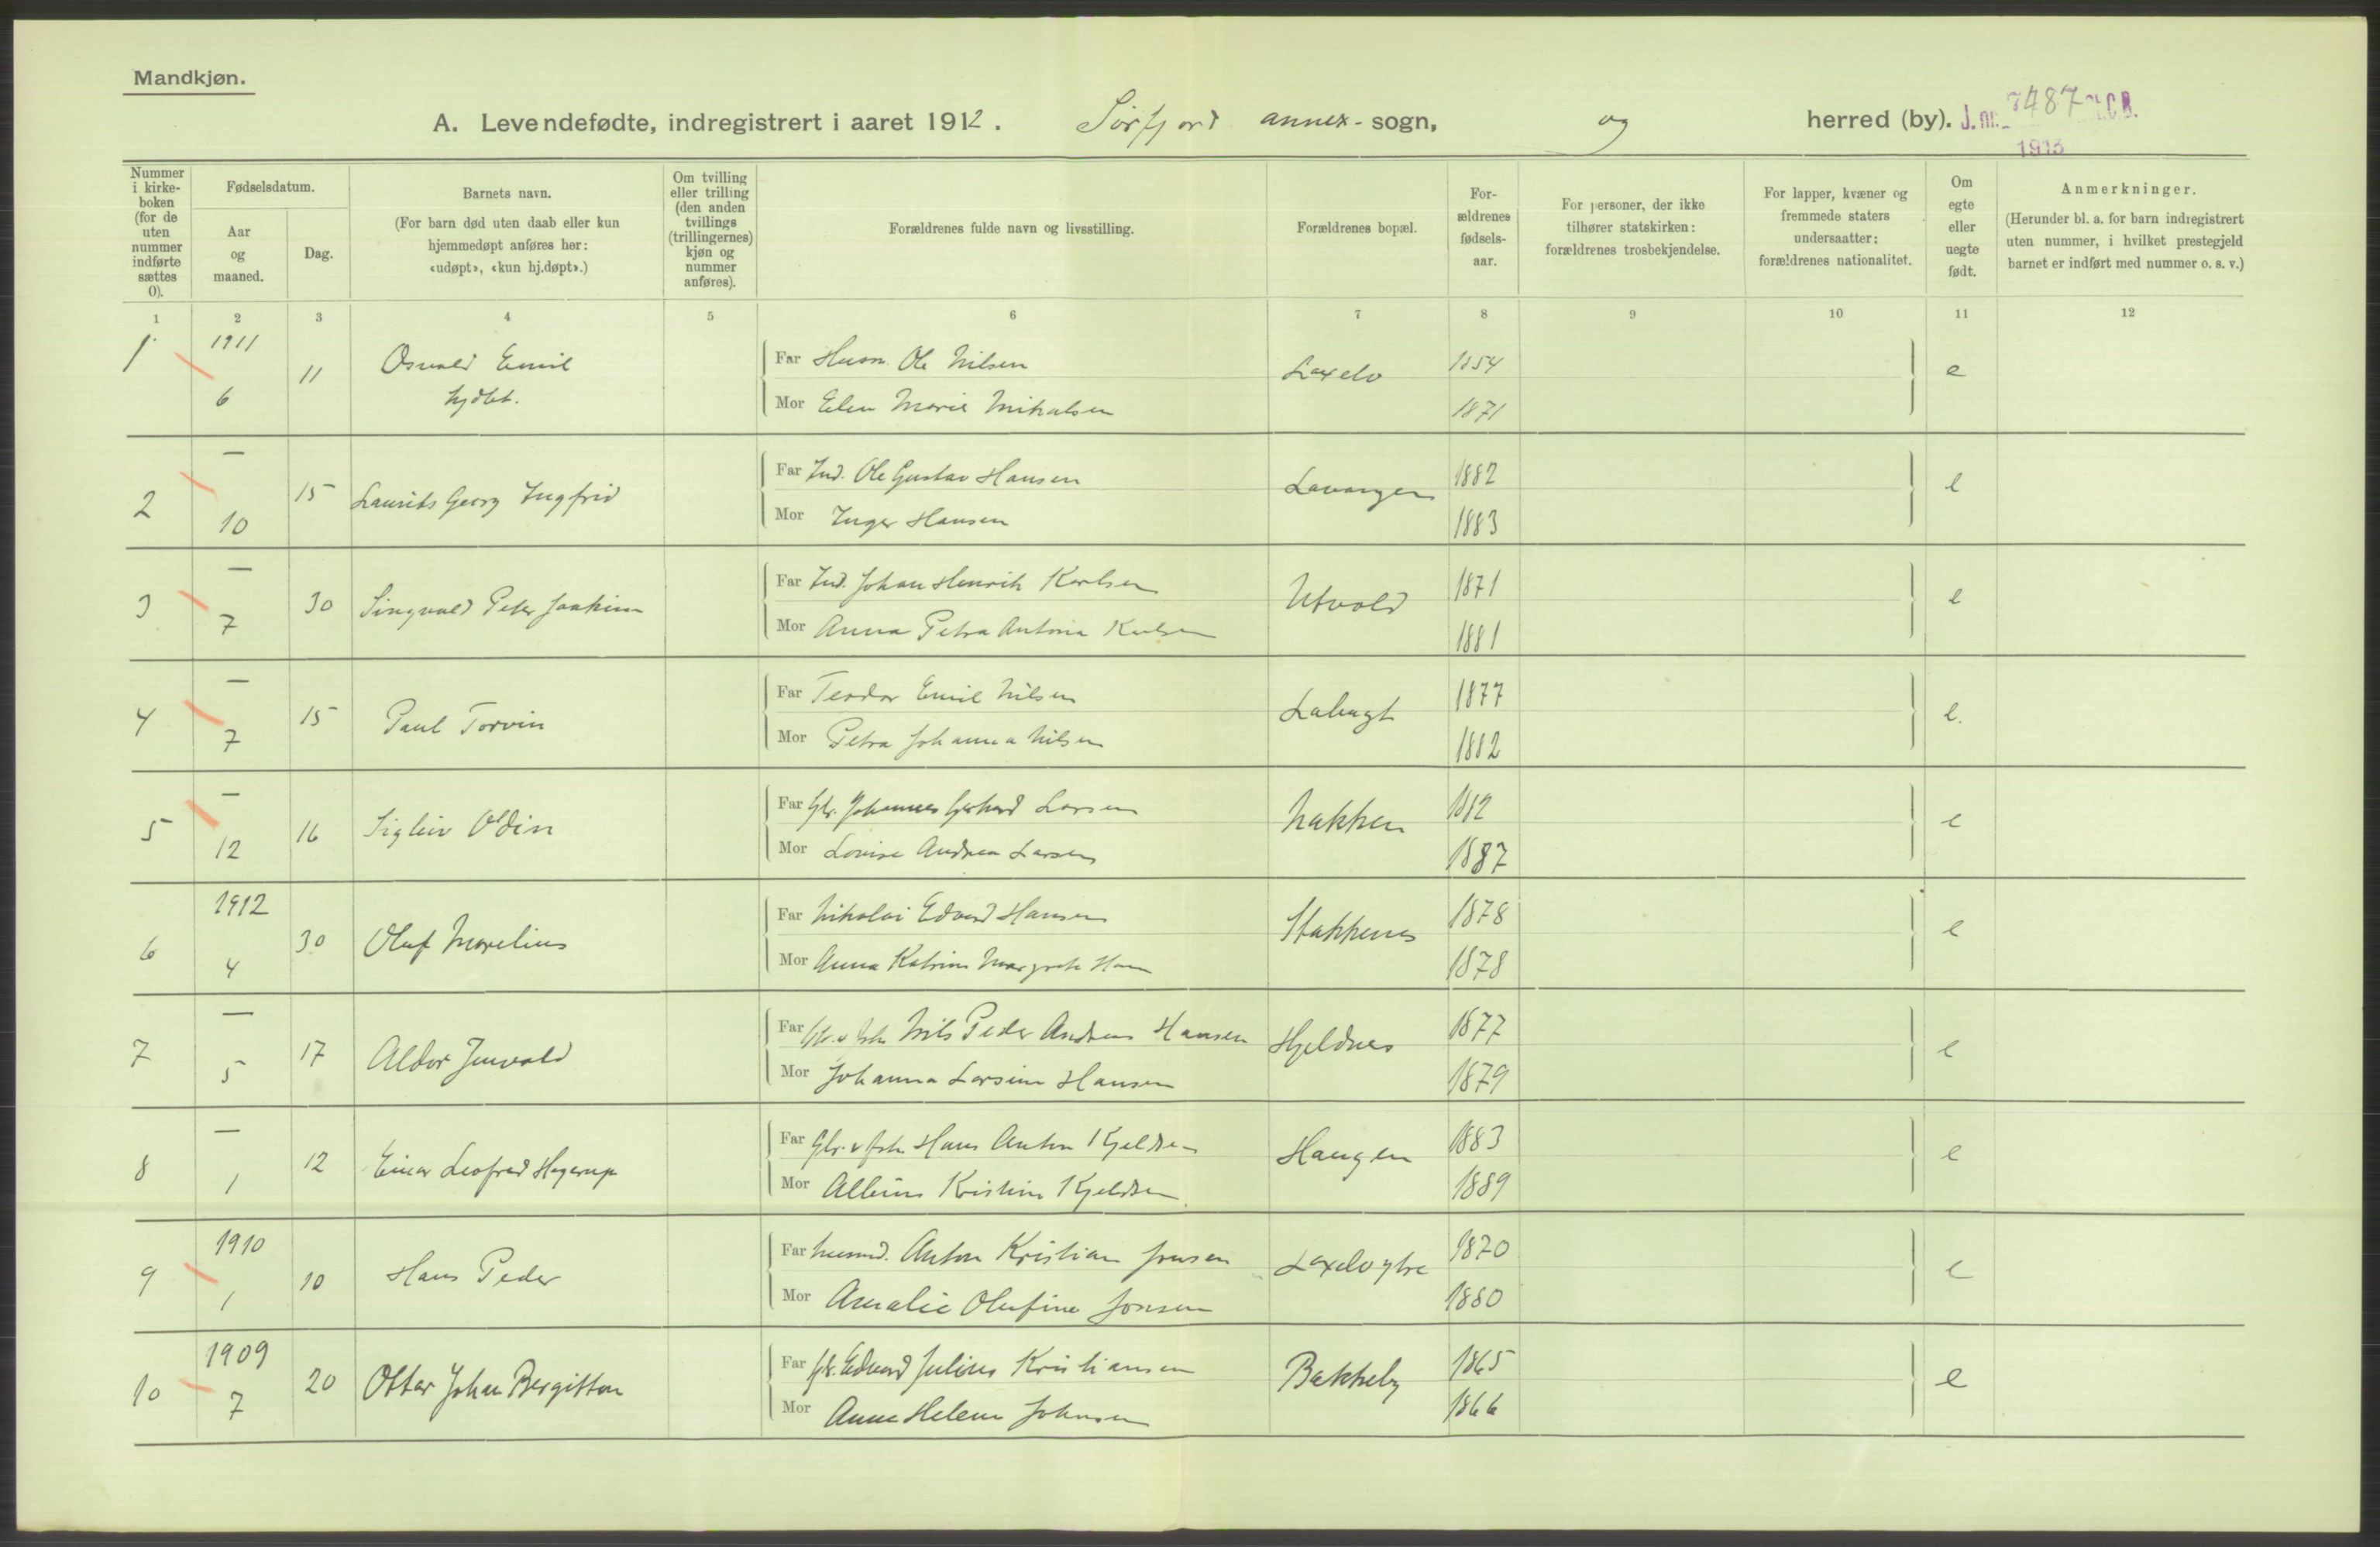 Mandkjøn.
A. Levendefødte, indregistrert i aaret 1912. Sörfjord annex-sogn, og herred (by). J.nr. 7487 St.C.B.
1913
Nummer i kirke-boken (for de uten nummer indførte sættes 0).
Fødselsdatum.
Aar og maaned.
Dag.
Barnets navn.
(For barn død uten daab eller kun hjemmedøpt anføres her: «udøpt», «kun hj.døpt».)
Om tvilling eller trilling (den anden tvillings (trillingernes) kjøn og nummer anføres).
Forældrenes fulde navn og livsstilling.
Forældrenes bopæl.
For-ældrenes fødsels-aar.
For personer, der ikke tilhører statskirken: forældrenes trosbekjendelse.
For lapper, kvæner og fremmede staters undersaatter: forældrenes nationalitet.
Om egte eller uegte født.
Anmerkninger.
(Herunder bl. a. for barn indregistrert uten nummer, i hvilket prestegjeld barnet er indført med nummer o. s. v.)
1 2 3 4 5 6 7 8 9 10 11 12
1 1911 6 11 Osvald Emil Far Husm. Ole Nilsen Laxelv 1854 e
hjdbt. Mor Elen Marie Mikalsen 1871
2 — 10 15 Laurits Georg Ingfrid Far Ind. Ole Gustav Hansen Lavangen 1882 e
Mor Inger Hansen 1883
3 — 7 30 Singvald Peter Joakim Far Ind. Johan Henrik Karlsen Utvold 1871 e
Mor Anna Petra Antonie Karlsen 1881
4 — 7 15 Paul Torvin Far Teodor Emil Nilsen 1877 e.
Mor Petra Johanna Nilsen 1882
5 — 12 16 Sigleiv Odin Far Gbr. Johannes Gerhard Larsen Nakken 1882 e
Mor Lovise Andrea Larsen 1887
6 1912 4 30 Oluf Marelius Far Nikolai Edvard Hansen Stakkenes 1878 e
Mor Anna Katrine Margrete Han 1878
7 — 5 17 Aldor Jenvald Far Gbr. v fisk. Nils Peder Andreas Hansen Hjeldnes 1877 e
Mor Johanna Larsine Hansen 1879
8 — 1 12 Einar Leofred Hagerup Far Gbr. v fisk. Hans Anton Kjeldsen Haugen 1883 e
Mor Albine Kristine Kjeldsen 1889
9 1910 1 10 Hans Peder Far Husmd. Anton Kristian Jonsen Laxelv ytre 1870 e
Mor Amalie Olufine Jonsen 1880
10 1909 7 20 Ottar Johan Bergitton Far Gbr. Edvard Julius Kristiansen Bakkeby 1865 e
Mor Anne Helene Johnsen 1866